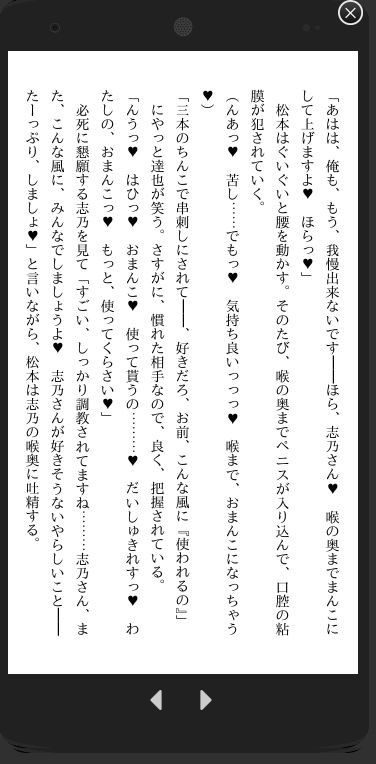 「あはは、俺も、もう、我慢出来ないです――ほら、志乃さん♥　喉の奥までまんこに
して上げますよ♥　ほらっ♥」
　松本はぐいぐいと腰を動かす。そのたび、喉の奥までペニスが入り込んで、口腔の粘
膜が犯されていく。
（んあっ♥　苦し……でもっ♥　気持ち良いっっっ♥　喉まで、おまんこになっちゃう
♥）
「三本のちんこで串刺しにされて――、好きだろ、お前、こんな風に『使われるの』」
　にやっと達也が笑う。さすがに、慣れた相手なので、良く、把握されている。
「んうっ♥　はひっ♥　おまんこ♥　使って貰うの………♥　だいしゅきれすっ♥　わ
たしの、おまんこっ♥　もっと、使ってくらさい♥」
　必死に懇願する志乃を見て「すごい、しっかり調教されてますね………志乃さん、ま
た、こんな風に、みんなでしましょうよ♥　志乃さんが好きそうないやらしいこと――
たーっぷり、しましょ♥」と言いながら、松本は志乃の喉奥に吐精する。